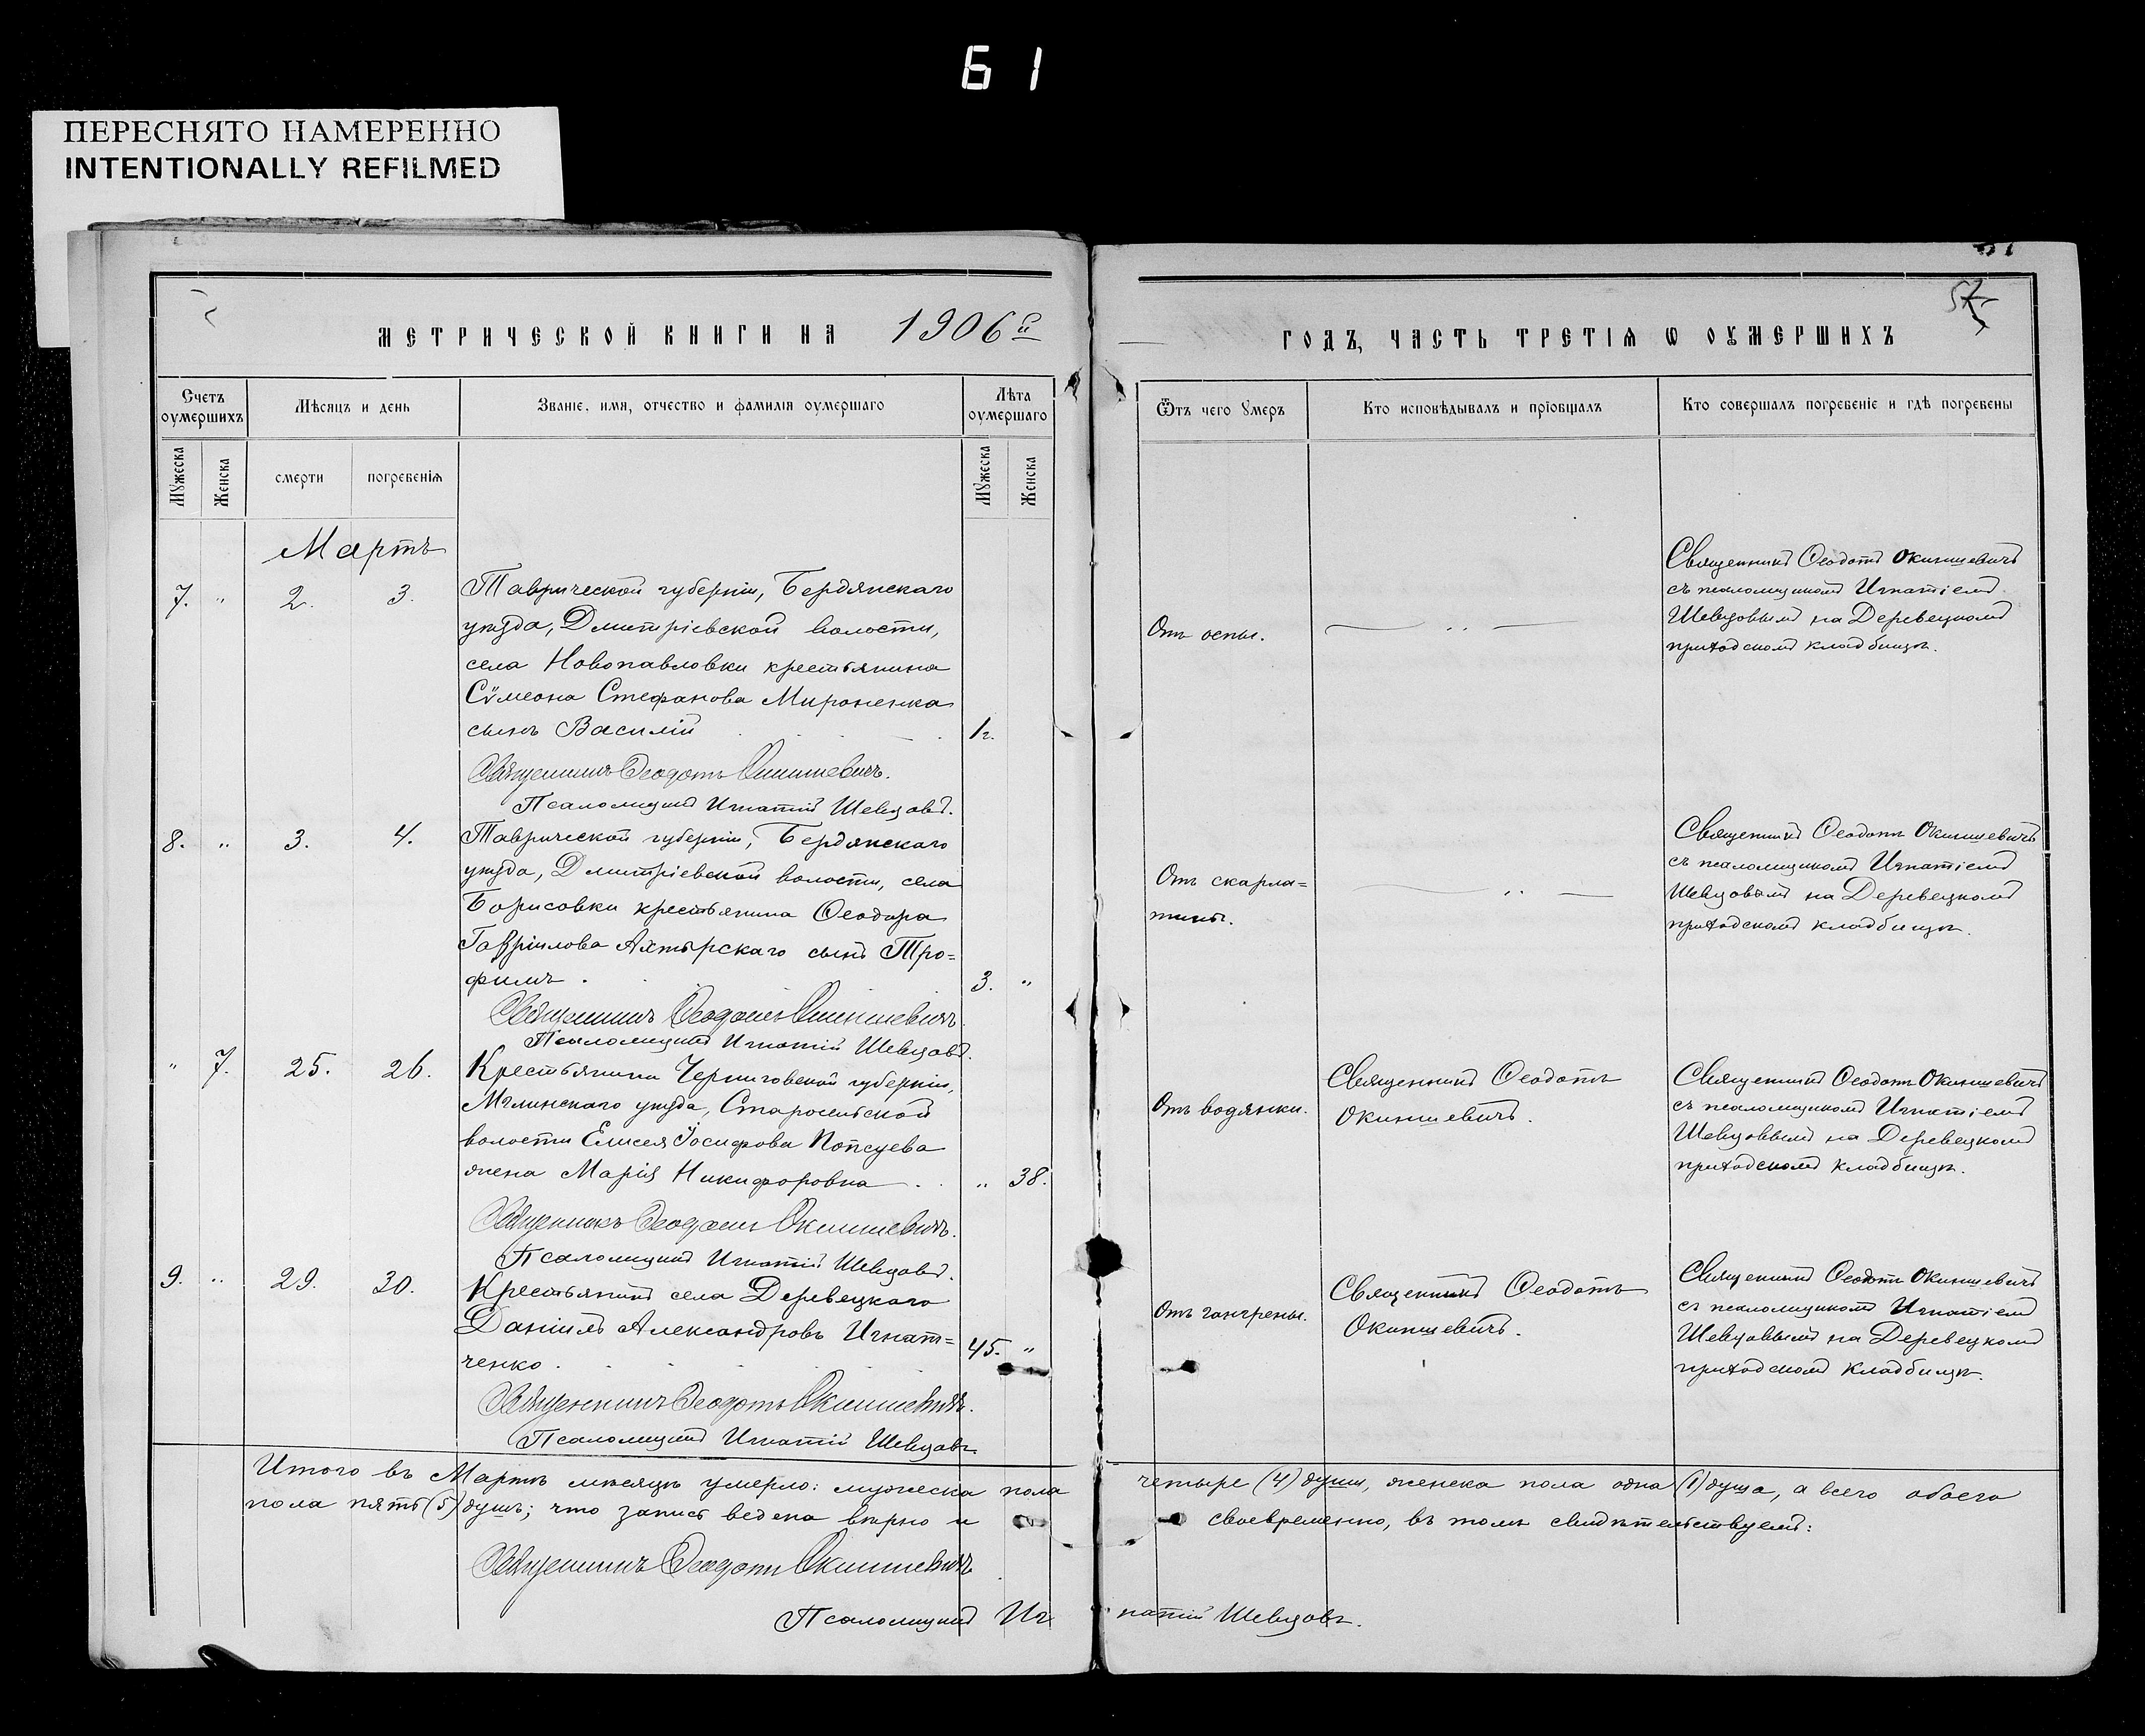 61
ПЕРЕСНЯТО НАМЕРЕННО
INTENTIONALLY REFILMED
МЕТРИЧЕСКОЙ КНИГИ НА 1906й
ГОДЪ, ЧАСТЬ ТРЕТІѦ Ѡ ОУМЕРШИХЪ
Счетъ оумершихъ
Мѣсяцъ и день
Званіе, имя, отчество и фамилія оумершаго
Лѣта оумершаго
Ѿтъ чего Умеръ
Кто исповѣдывалъ и пріобщалъ
Кто совершалъ погребеніе и гдѣ погребены
Мужеска
Женска
смерти
погребенія
Мужеска
Женска
Мартъ
7. " 2. 3.
Таврической губерніи, Бердянскаго
уѣзда, Дмитріевской волости,
села Новопавловки крестьянина
Сѵмеона Стефанова Мироненка
сынъ Василій
1г.
Отъ оспы.
Священникъ Ѳеодотъ Окиншевичъ
съ псаломщикомъ Игнатіемъ
Шевцовымъ на Деревецкомъ
приходскомъ кладбищѣ.
Священникъ Ѳеодотъ Окиншевичъ.
Псаломщикъ Игнатій Шевцовъ.
8. " 3. 4.
Таврической губерніи, Бердянскаго
уѣзда, Дмитріевской волости, села
Борисовки крестьянина Ѳеодора
Гавріилова Ахтырскаго сынъ Тро=
фимъ.
3. "
Отъ скарла=
тины.
Священникъ Ѳеодотъ Окиншевичъ
съ псаломщикомъ Игнатіемъ
Шевцовымъ на Деревецкомъ
приходскомъ кладбищѣ.
Священникъ Ѳеодотъ Окиншевичъ.
Псаломщикъ Игнатій Шевцовъ.
" 7. 25. 26.
Крестьянина Черниговской губерніи,
Мглинскаго уѣзда,
волости Елисея Іосифова Попсуева
жена Марія Никифоровна
" 38.
Отъ водянки.
Священникъ Ѳеодотъ
Окиншевичъ.
Священникъ Ѳеодотъ Окиншевичъ
съ псаломщикомъ Игнатіемъ
Шевцовымъ на Деревецкомъ
приходскомъ кладбищѣ.
Священникъ Ѳеодотъ Окиншевичъ.
Псаломщикъ Игнатій Шевцовъ.
9. " 29. 30.
Крестьянинъ села Деревецкаго
Даніилъ Александровъ Игнат=
ченко
45. "
Отъ гангрены.
Священникъ Ѳеодотъ
Окиншевичъ.
Священникъ Ѳеодотъ Окиншевичъ
съ псаломщикомъ Игнатіемъ
Шевцовымъ на Деревецкомъ
приходскомъ кладбищѣ.
Священникъ Ѳеодотъ Окиншевичъ.
Псаломщикъ Игнатій Шевцовъ
Итого въ Мартѣ мѣсяцѣ умерло: мужеска пола четыре (4) души, женска пола одна (1) душа, а всего обоего
пола пять (5) душъ; что запись ведена вѣрно и своевременно, въ томъ свидѣтельствуемъ:
Священникъ Ѳеодотъ Окиншевичъ
Псаломщикъ Игнатій Шевцовъ.